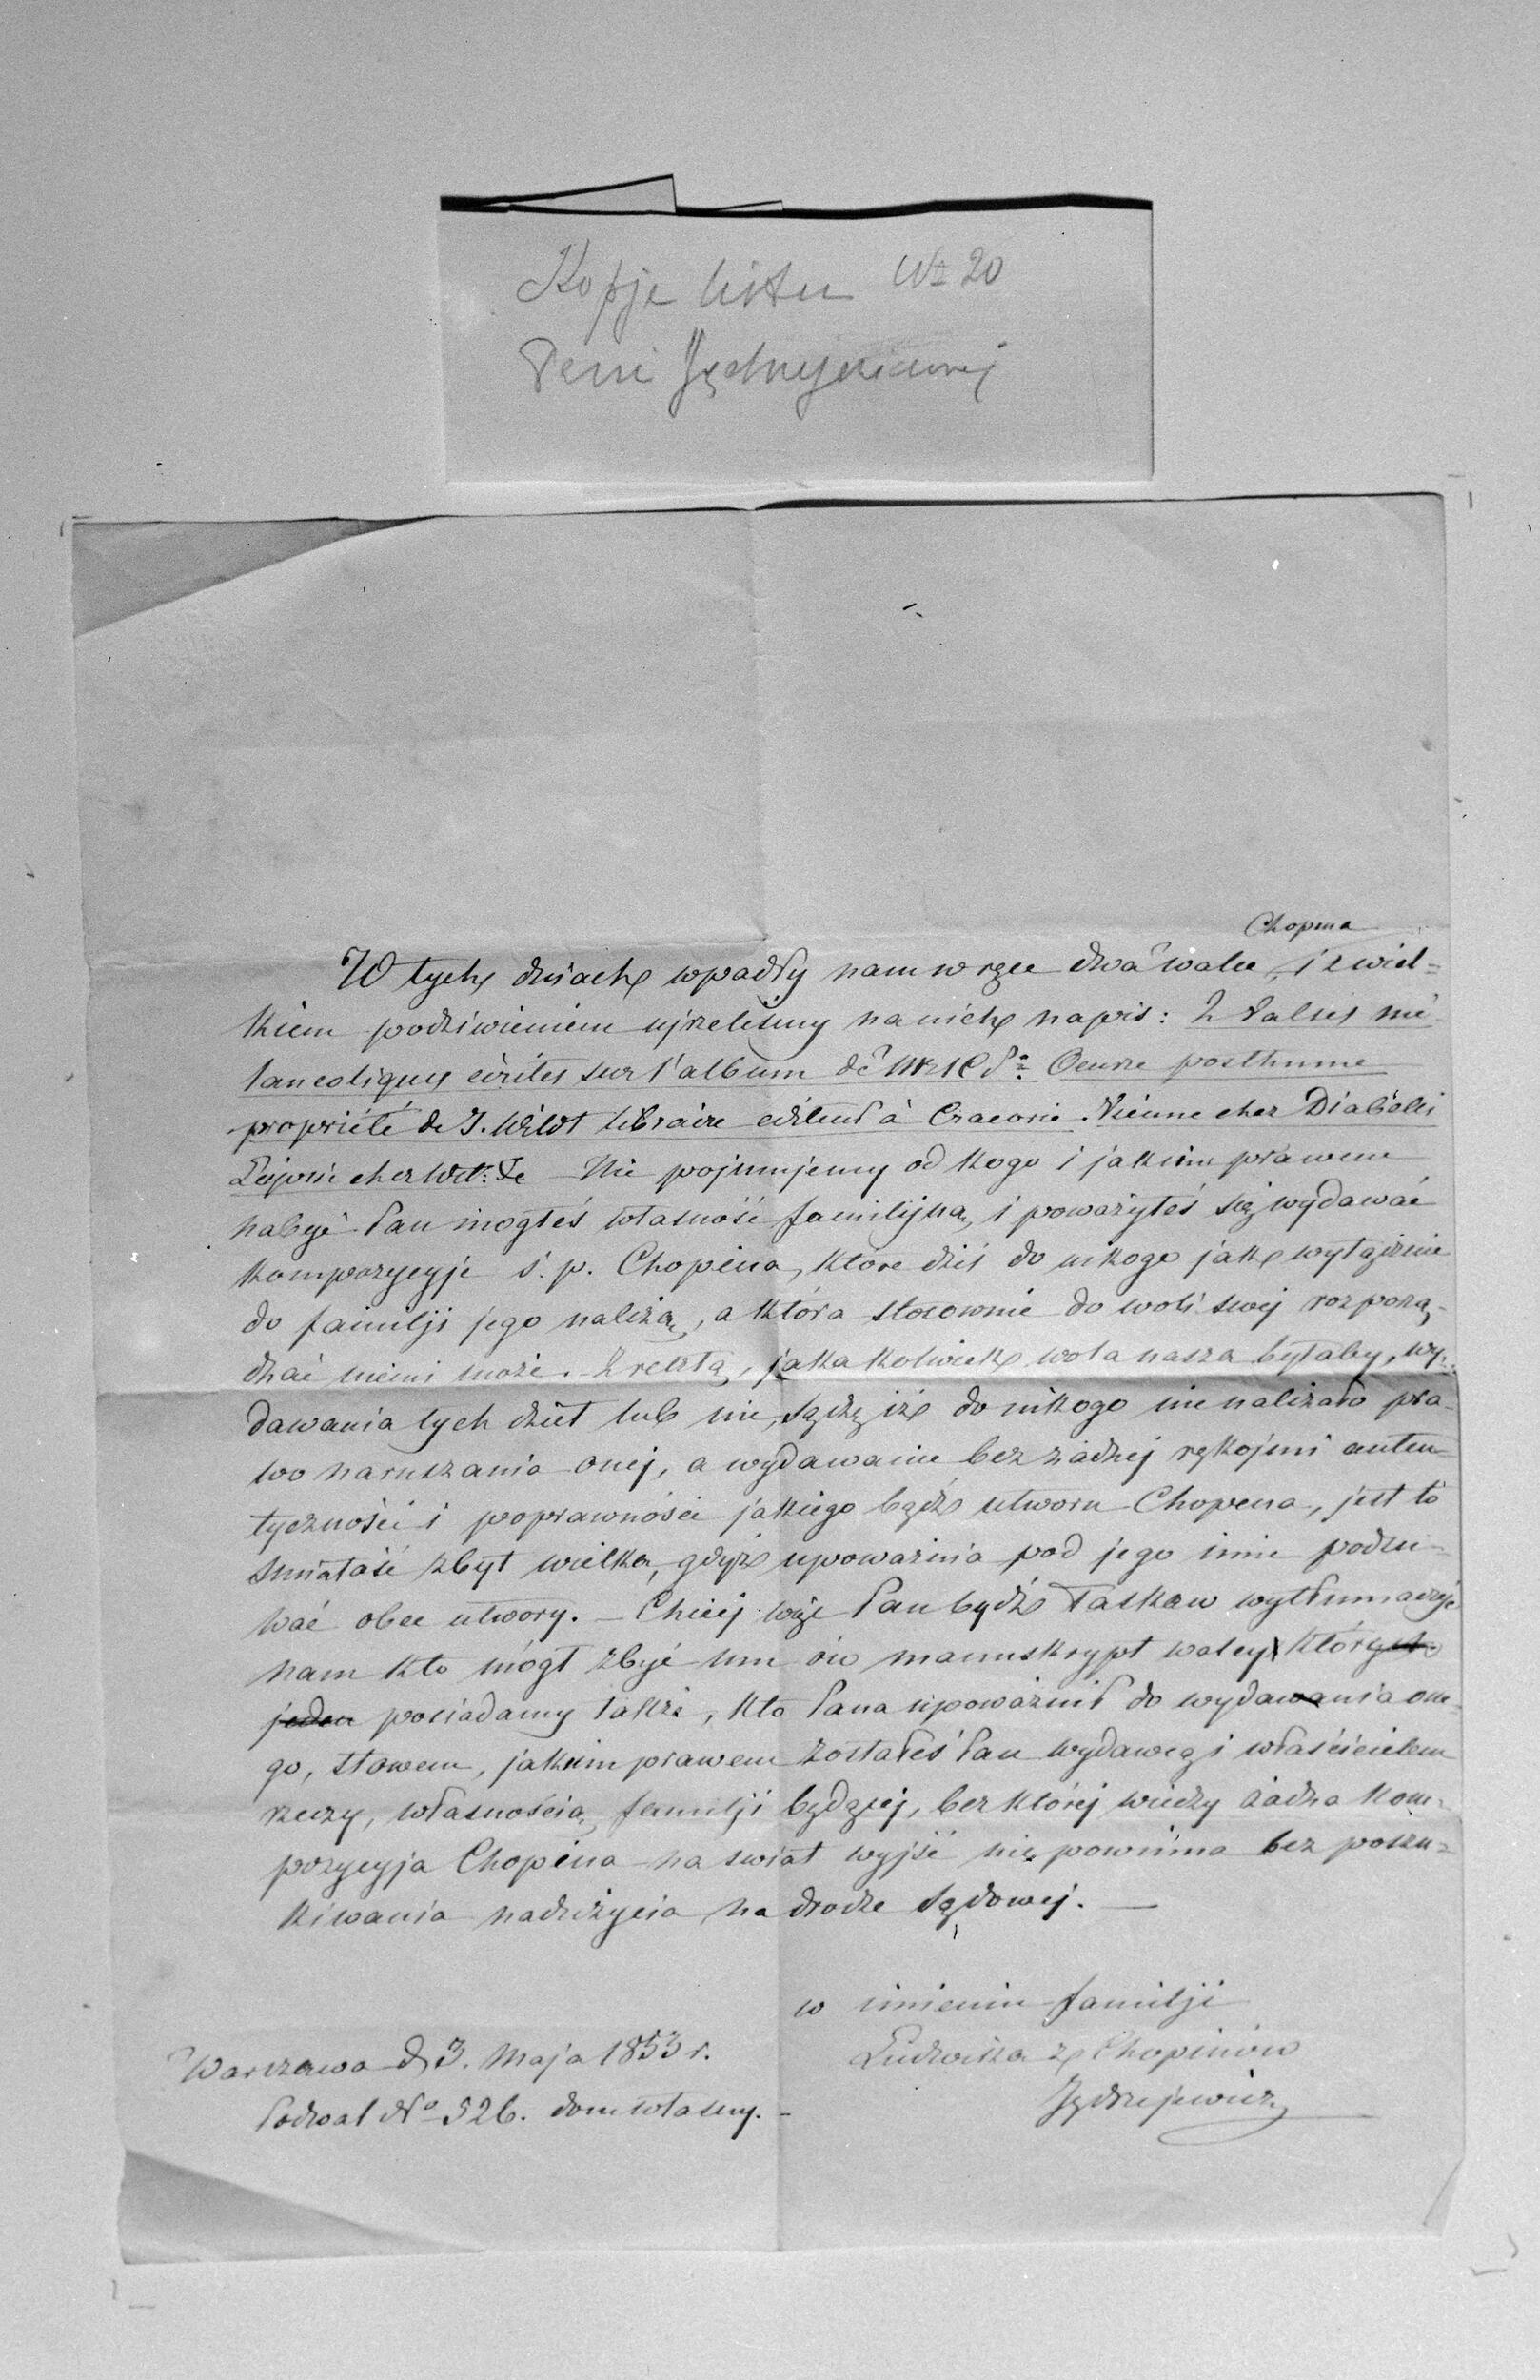 Kopje listu № 20
Peni Jędrzejewiczowej
Chopina
W tych dniach wpadły nam w ręce dwa walce, i z wiel=
kiem podziwieniem ujrzeliśmy na nich napis: 2 Valses mé-
lancoliques écrites sur l'album de
Oeuvre posthume
propriété de J. Wildt libraire editeur à Cracovie. Vienne chez Diabelli
Leipsic chez
Nie pojmujemy od kogo i jakim prawem
nabyć Pan mogłeś własność familijną, i poważyłeś się wydawać
kompozycyje ś. p. Chopina, które dziś do nikogo jak wyłącznie
do familji jego należą, a która stosownie do woli swej rozporzą-
dzać niemi może. Zresztą, jakakolwiek wola nasza byłaby, wy-
dawania tych dzieł lub nie, sądzę iż do nikogo nie należało pra-
wo naruszania onej, a wydawanie bez żadnej rękojmi auten-
tyczności i poprawności jakiego bądź utworu Chopina, jest to
śmiałość zbyt wielka, gdyż upoważnia pod jego imie podsu-
wać obce utwory. – Chciej więc Pan bydź łaskaw wytłumaczyć
nam kto mógł zbyć mu ów manuskrypt walcy których
jeden posiadamy także, kto Pana upoważnił do wydawania one-
go, słowem, jakim prawem zostałeś Pan wydawcą i właścicielem
rzeczy, własnością familji będącej, bez której wiedzy żadna kom-
pozycyja Chopina na świat wyjść nie powinna bez poszu-
kiwania nadużycia na drodze sądowej. —
w imieniu familji
Ludwika z Chopinów
Jędrzejewicz
Warszawa d 3. Maja 1853 r.
Podwal No 526. dom własny. –